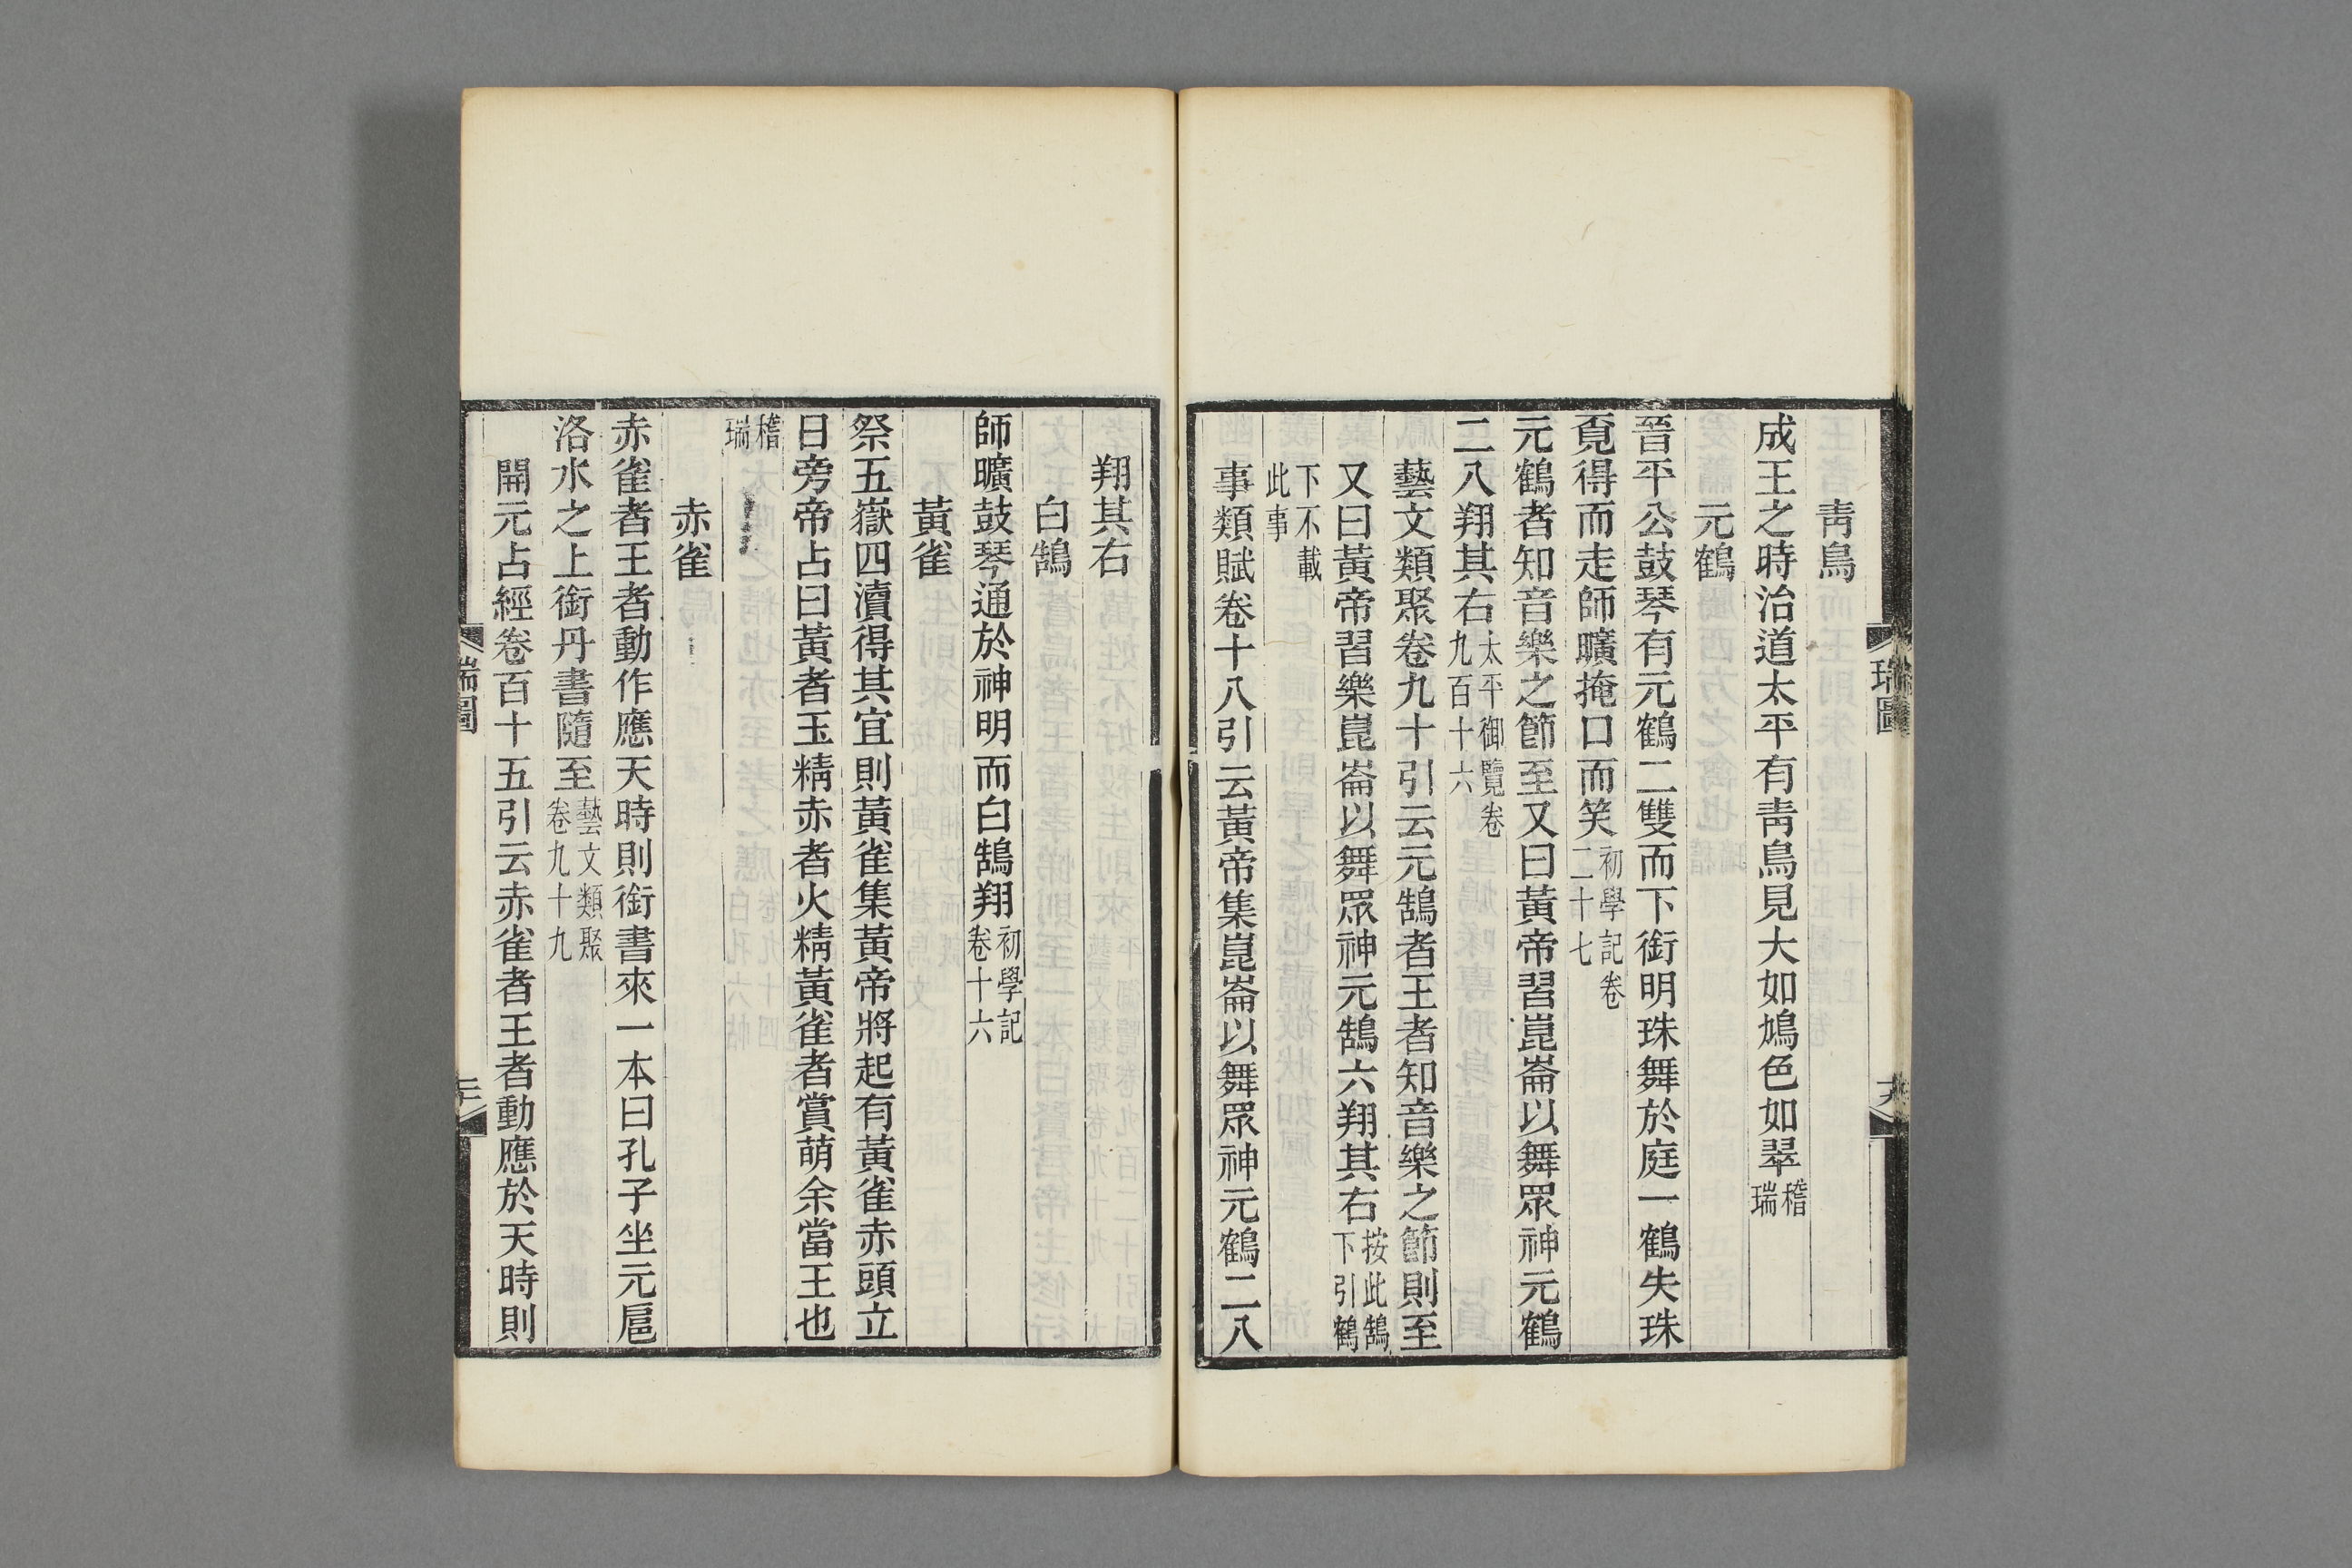 青鳥
成王之時治道太平有青鳥見大如鴆色如翠稽瑞
元鶴
晉平公鼓琴有元鶴二雙而下銜明珠舞於庭一鶴失珠
覔得而走師曠掩口而笑初學記卷二十七
元鶴者知音樂之節至又曰黃帝習崑崙以舞眾神元鶴
二八翔其右太平御覽卷九百十六
藝文類聚卷九十引云元鵠者王者知音樂之節則至
又曰黃帝習樂崑崙以舞眾神元鵠六翔其右按此鵠下引鶴
下不載此事
事類賦卷十八引云黃帝集崑崙以舞眾神元鶴二八
翔其右
白鵠
師曠鼓琴通於神明而白鵠翔初學記卷十六
黃雀
祭五嶽四瀆得其宜則黃雀集黃帝將起有黃雀赤頭立
日旁帝占曰黃者玉精赤者火精黃雀者賞萌余當王也
稽瑞
赤雀
赤雀者王者動作應天時則銜書來一本曰孔子坐元扈
洛水之上銜丹書隨至藝文類聚卷九十九
開元占經卷百十五引云赤雀者王者動應於天時則
瑞圖